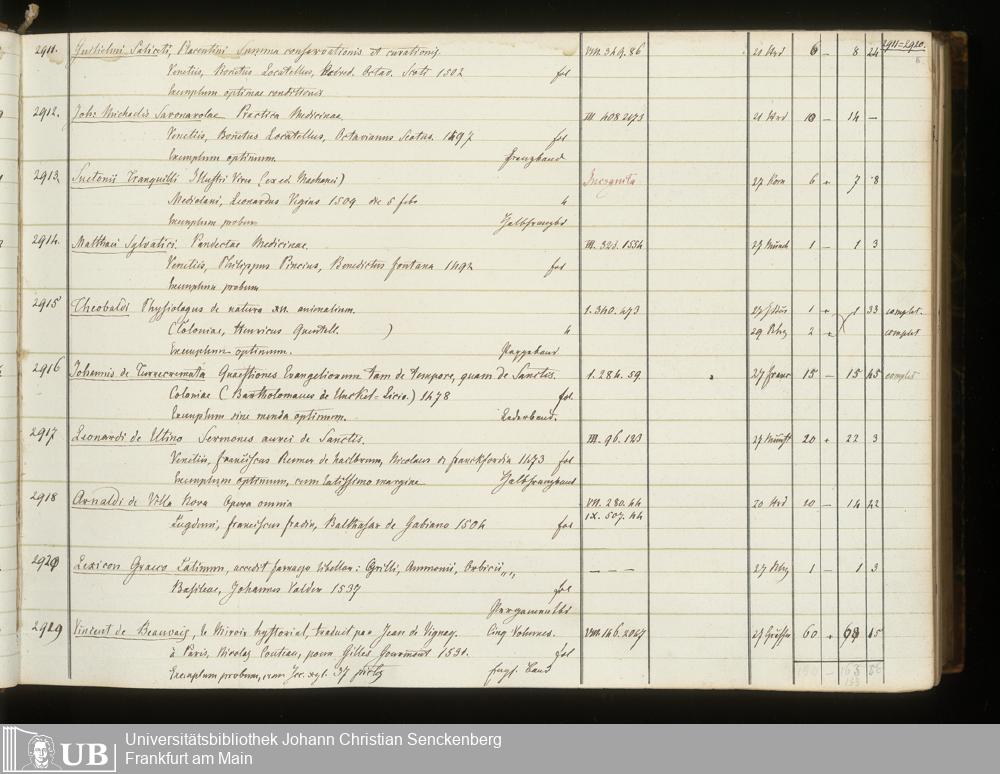 2911-2920.
2911. Guilielmi Saliceti, Placentini Summa conservationis et curationis. VIII. 349.86 21 6 — 8 24
Venetiis, Bonetus Locatellus, Octav. Scoti 1502 fol
Exemplum optimae conditionis
2912. Joh. Michaelis Savonarolae Practica Medicinae III. 408.2073 21 10 — 14 —
Venetiis, Bonetus Locatellus, Octavianus Scotus. 1497 fol
Exemplum optimum. Franzband
2913. Suetonii Tranquilli Illustri Vires (ex ed. Machanei) Incognita 27 Korn 6 7 8
Mediolani, Leonardus Vegius 1509 die 5 febr 4
Exemplum probum Halbfranzbd
2914. Matthaei Sylvatici. Pandectae Medicinae. III. 323.1554 27 1 — 1 3
Venetiis, Philippus Pincius, Benedictus Fontana 1492 fol
Exemplum probum
2915 Theobaldi Physiologus de natura XII. animalium. 1. 340.473 27 1 1 33 complet.
(Coloniae, Henricus Quentell. ) 4 29 2 complet
Exemplum optimum. Pappeband
2916 Johannis de Turrecremata Quaestiones Evangeliorum tam de tempore, quam de Sanctis. 1. 284.59 27 Franc 15 — 15 45 complet
Coloniae (Bartholomaeus de Unckel-Zirio.) 1478 fol
Exemplum sine menda optimum. Lederband.
2917 Leonardi de Utino Sermones aurei de Sanctis. III. 96.123 27 20 22 3
Venetiis, Franciscus Renner de Hailbrun, Nicolaus de Franckfordia 1473 fol
Exemplum optimum, cum latissimo margine Halbfranzband
2918 Arnaldi de Villa Nova Opera omnia VII. 280.44 20 20 — 14 42
IX. 507.44
Lugduni, Franciscus Fradin, Balthasar de Gabiano 1504 fol
2920 Lexicon Graeco Latinum, accedit farrago libellor: Cyrilli, Ammonii, Orbicii,,, — — — 27 1 — 1 3
Basileae, Johannes Valder 1537 fol
Pergamentbd
2919 Vincent de Beauvais, le Miroir hystorial, traduit par Jean de Vignay. Cinq Volumes. VIII. 146.2027 27 60 63 15
à Paris, Nicolas Couteau, pour Gilles Gourmont 1531. fol
Exemplum probum, Engl. Band
UB Universitätsbibliothek Johann Christian Senckenberg
Frankfurt am Main